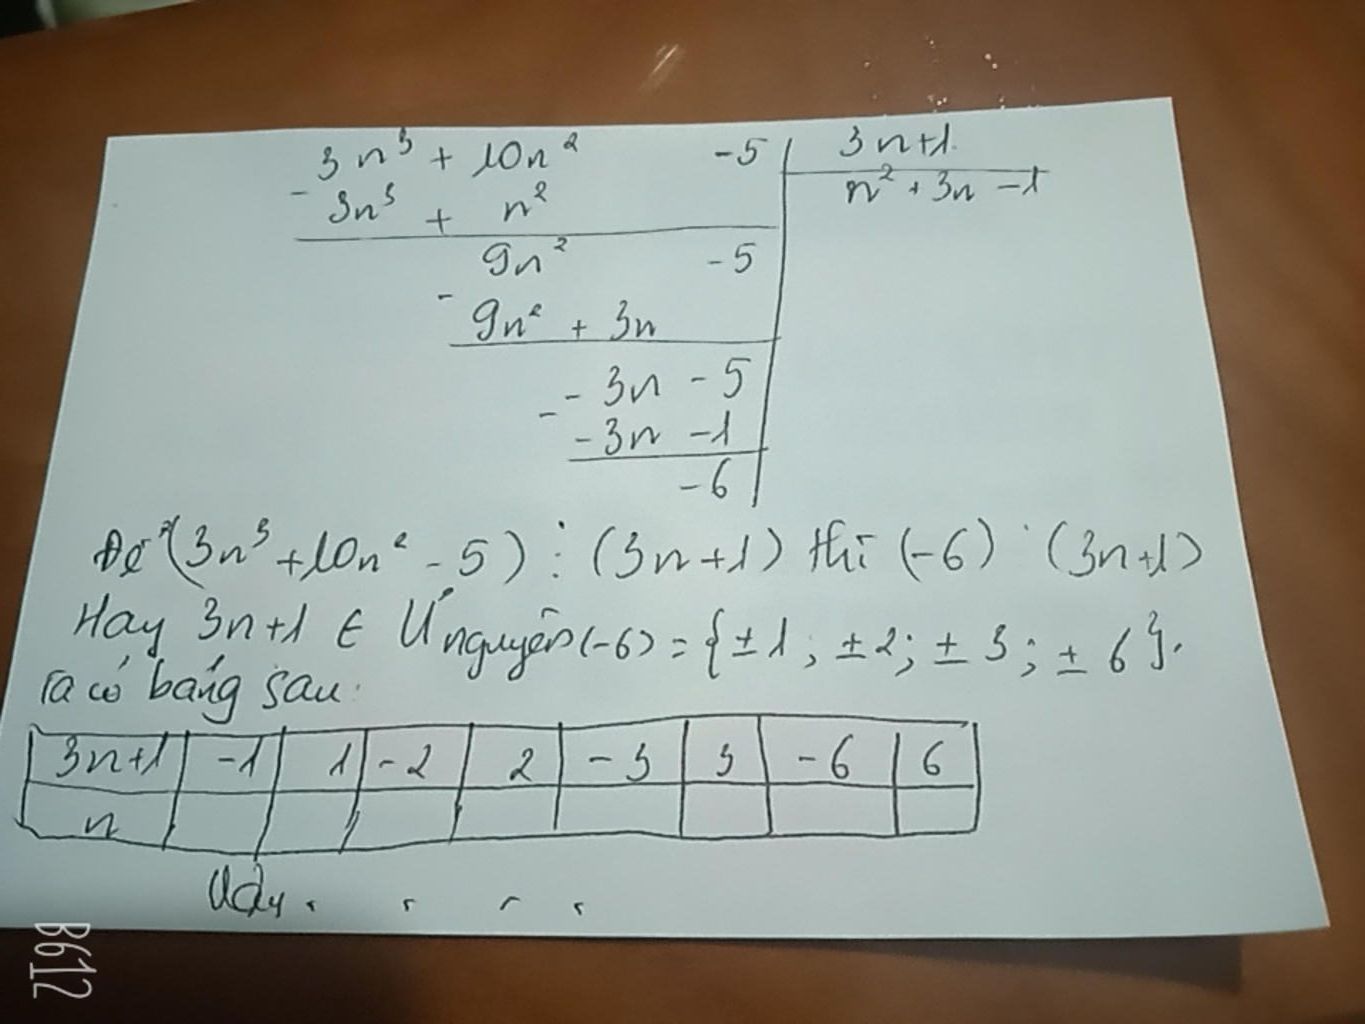 3n³ + 10n² -5 | 3n+1.
- 3n³ + n² | n² + 3n -1
9n² -5
- 9n² + 3n
- 3n - 5
- - 3n -1
-6
Để (3n³ +10n² - 5) ⋮ (3n+1) thì (-6) ⋮ (3n+1)
Hay 3n+1 ∈ Ư nguyên (-6) = {±1; ±2; ±3; ±6}.
Ta có bảng sau:
3n+1 | -1 | 1 | -2 | 2 | -3 | 3 | -6 | 6
n
Vậy . . . .
B612